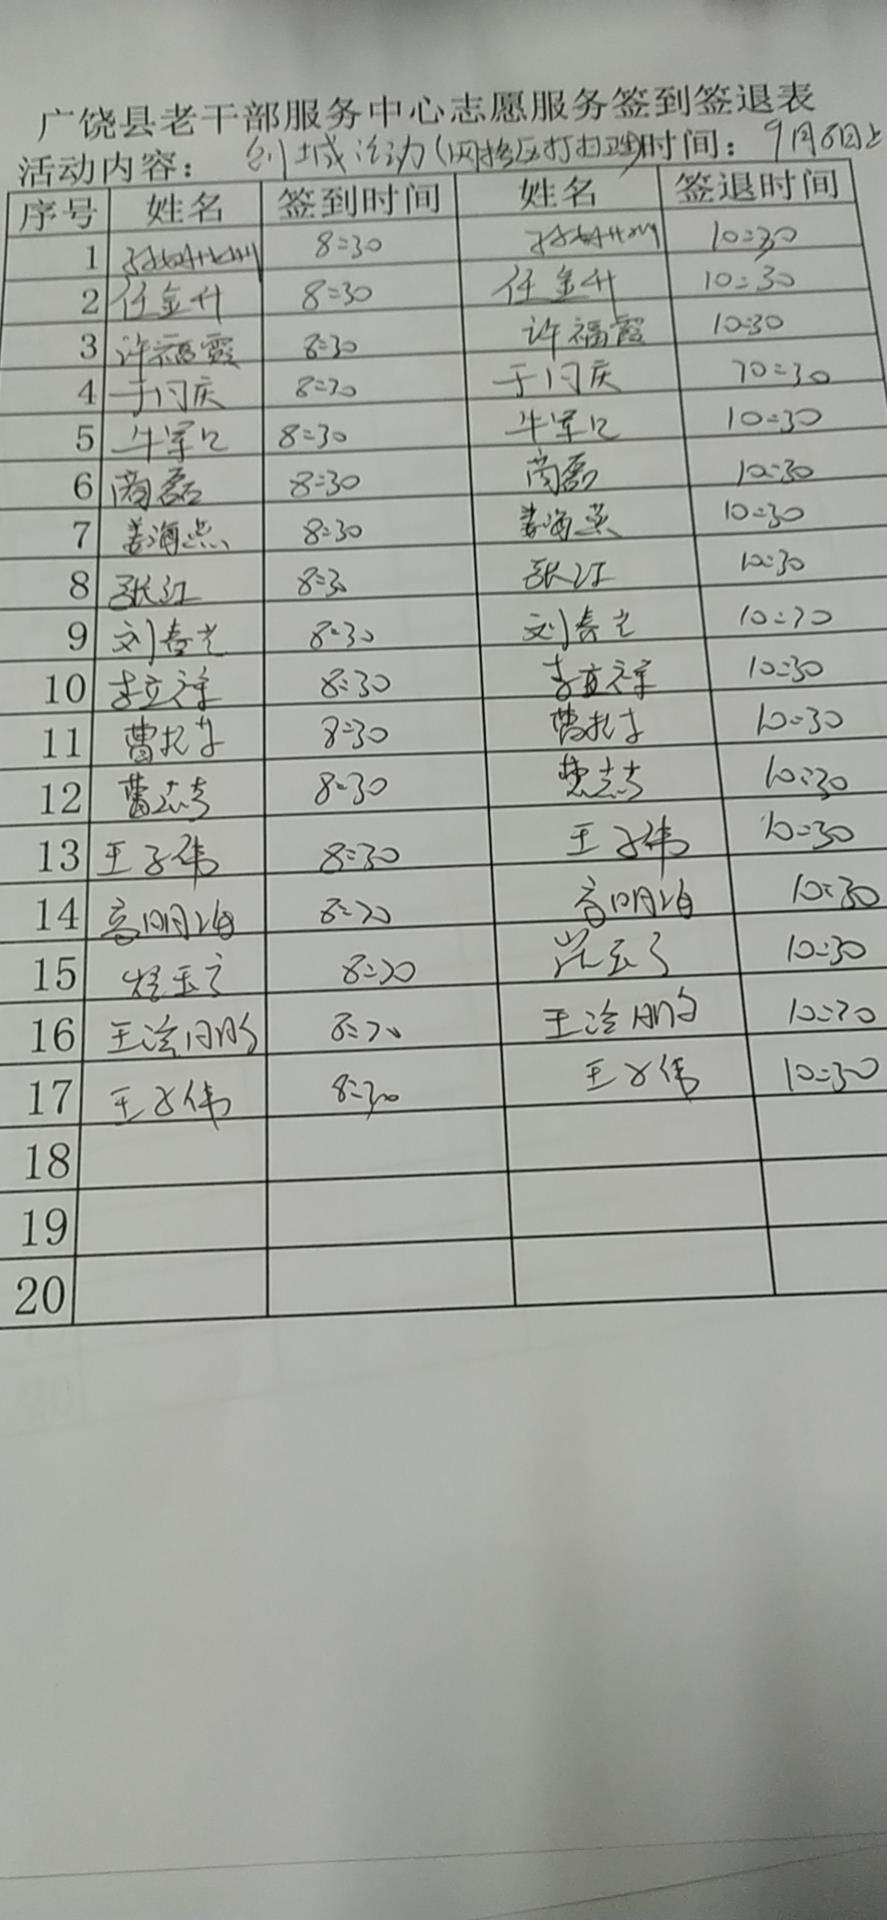 广饶县老干部服务中心志愿服务签到签退表
活动内容：创城活动（网格区打扫卫生）时间：9月6日上
序号 姓名 签到时间 姓名 签退时间
1 8:30 10:30
2 任金升 8:30 任金升 10:30
3 许福霞 8:30 许福霞 10:30
4 于门庆 8:30 于门庆 10:30
5 牛军 8:30 牛军 10:30
6 商磊 8:30 商磊 10:30
7 姜海燕 8:30 姜海燕 10:30
8 张江 8:30 张江 10:30
9 刘春 8:30 刘春 10:30
10 李立 8:30 李立 10:30
11 曹 8:30 曹 10:30
12 8:30 10:30
13 王子伟 8:30 王子伟 10:30
14 高明 8:30 高明 10:30
15 8:30 10:30
16 王 8:30 王 10:30
17 王子伟 8:30 王子伟 10:30
18
19
20